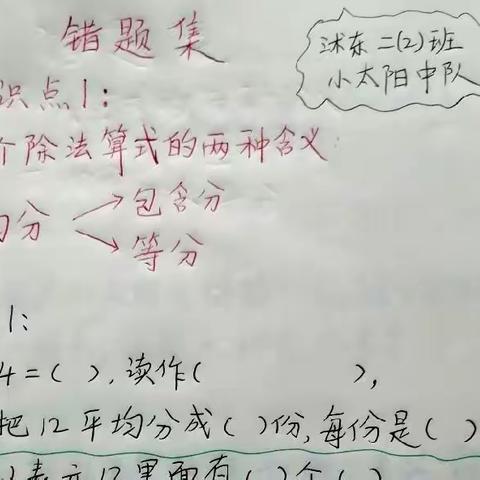 错题集
沭东二(2)班
小太阳中队
识点1:
个除法算式的两种含义:
均分
包含分
等分
1:
4=( ),读作( ),
把12平均分成( )份,每份是( )
表示12里面有( )个( )